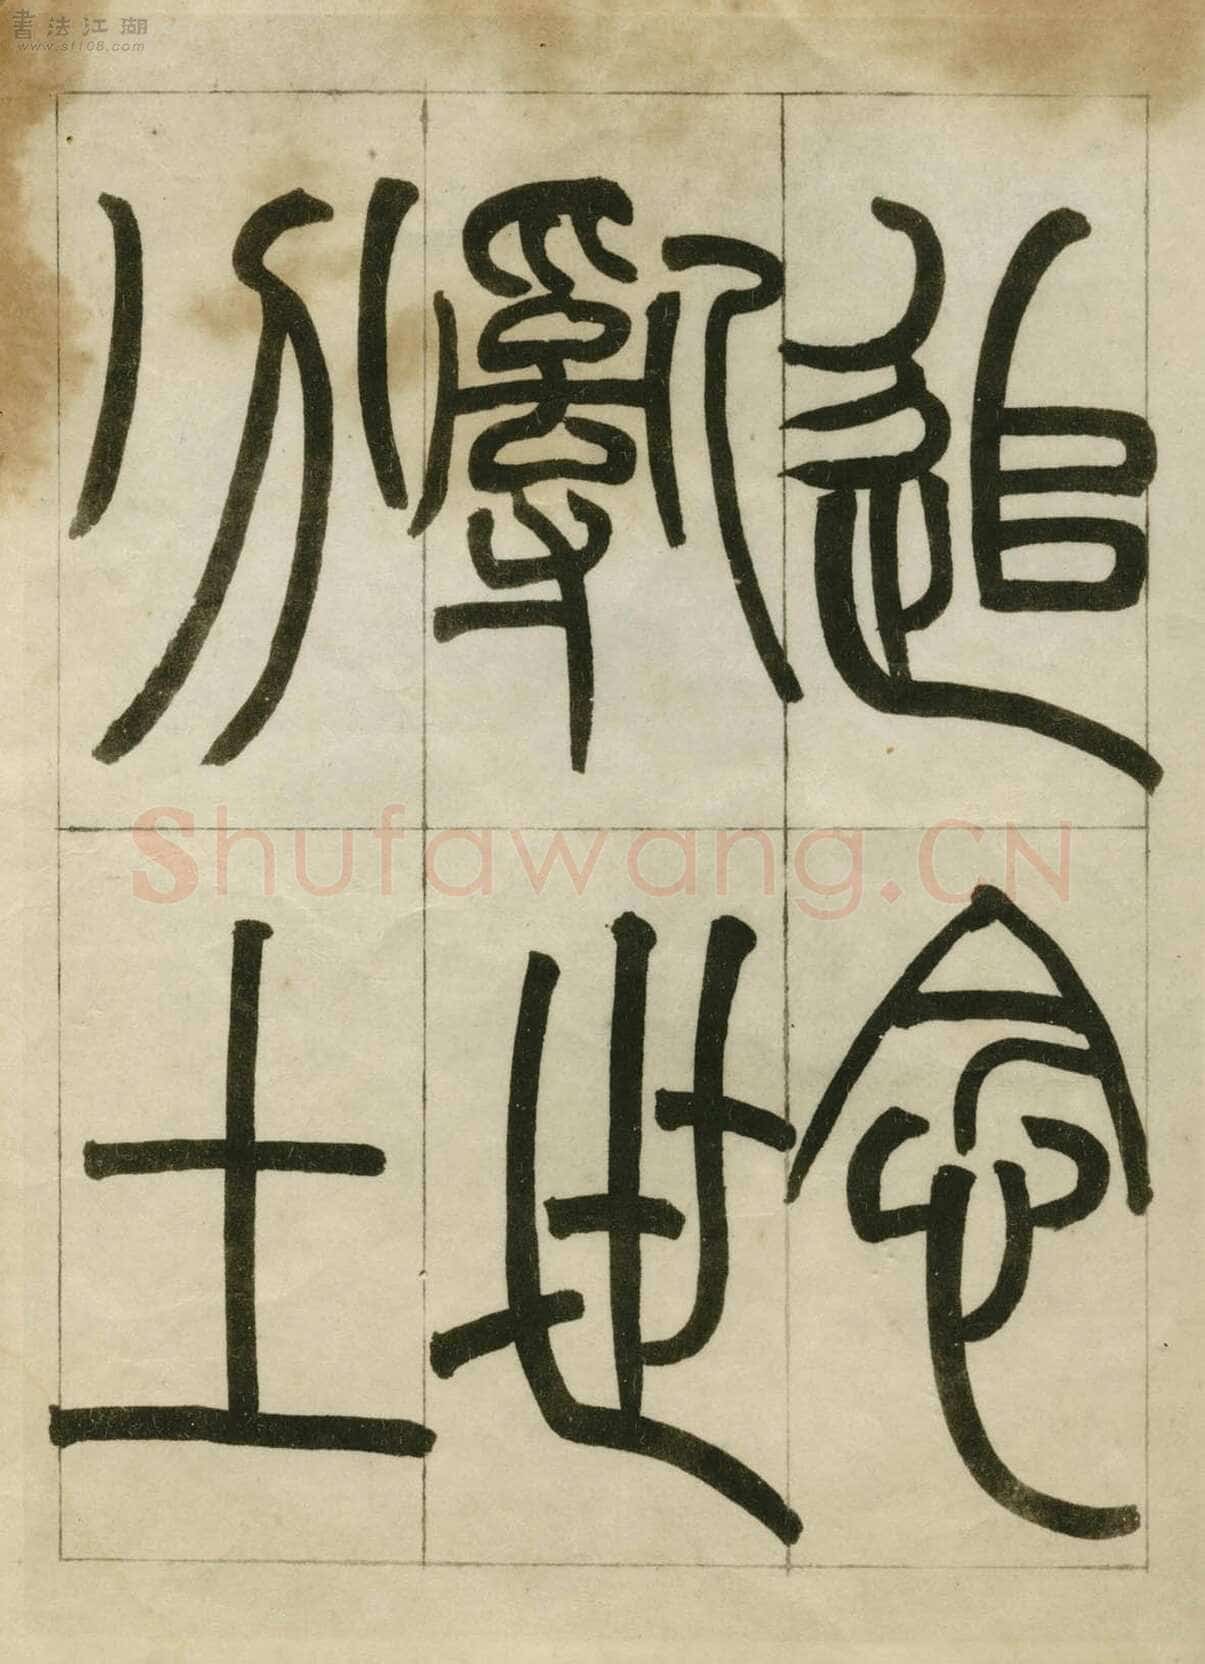 書法江湖
www.sf108.com
追念
亂世
分土
Shufawang.CN